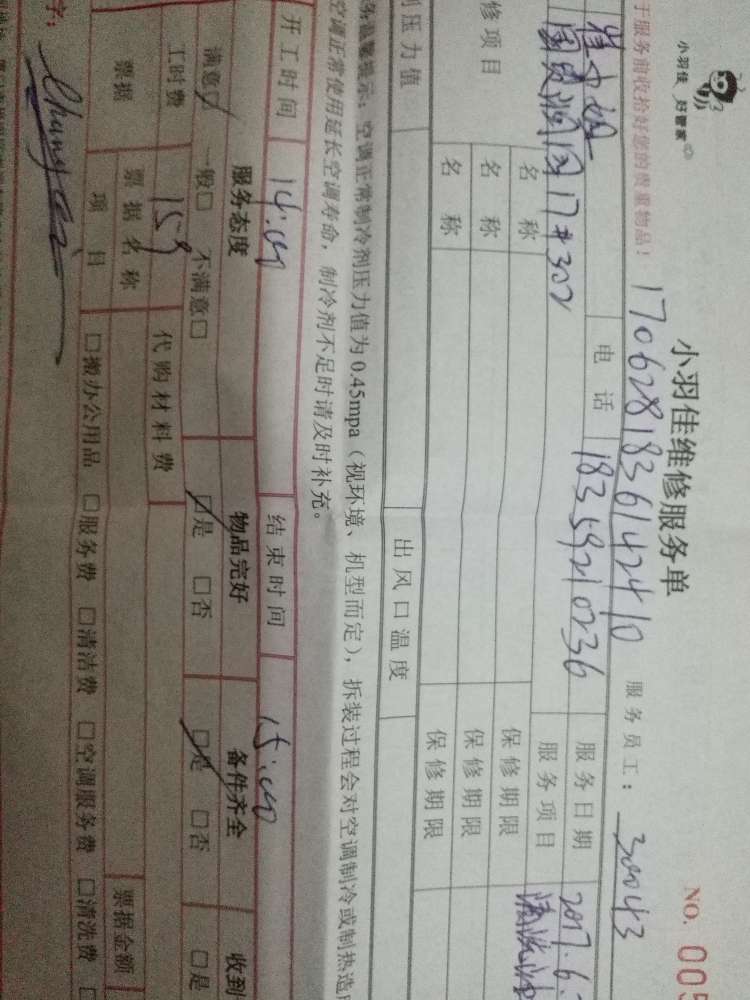 小羽佳 好管家
小羽佳维修服务单
NO. 005
于服务前收拾好您的贵重物品！
1706281836142410
服务员工：
30043
电话
18359210236
服务日期
2017.6.
国贸 17#302
服务项目
清洗
修项目
名称
保修期限
名称
保修期限
名称
保修期限
剂压力值
出风口温度
务温馨提示：空调正常制冷剂压力值为0.45mpa（视环境、机型而定），拆装过程会对空调制冷或制热造
空调正常使用延长空调寿命，制冷剂不足时请及时补充。
开工时间
14:00
结束时间
15:00
服务态度
物品完好
备件齐全
收到
满意□ 一般□ 不满意□
□是 □否
□是 □否
□是
工时费
159
代购材料费
票据
票据名称
票据金额
项目
□搬办公用品 □服务费 □清洁费 □空调服务费 □清洗费 □
字：